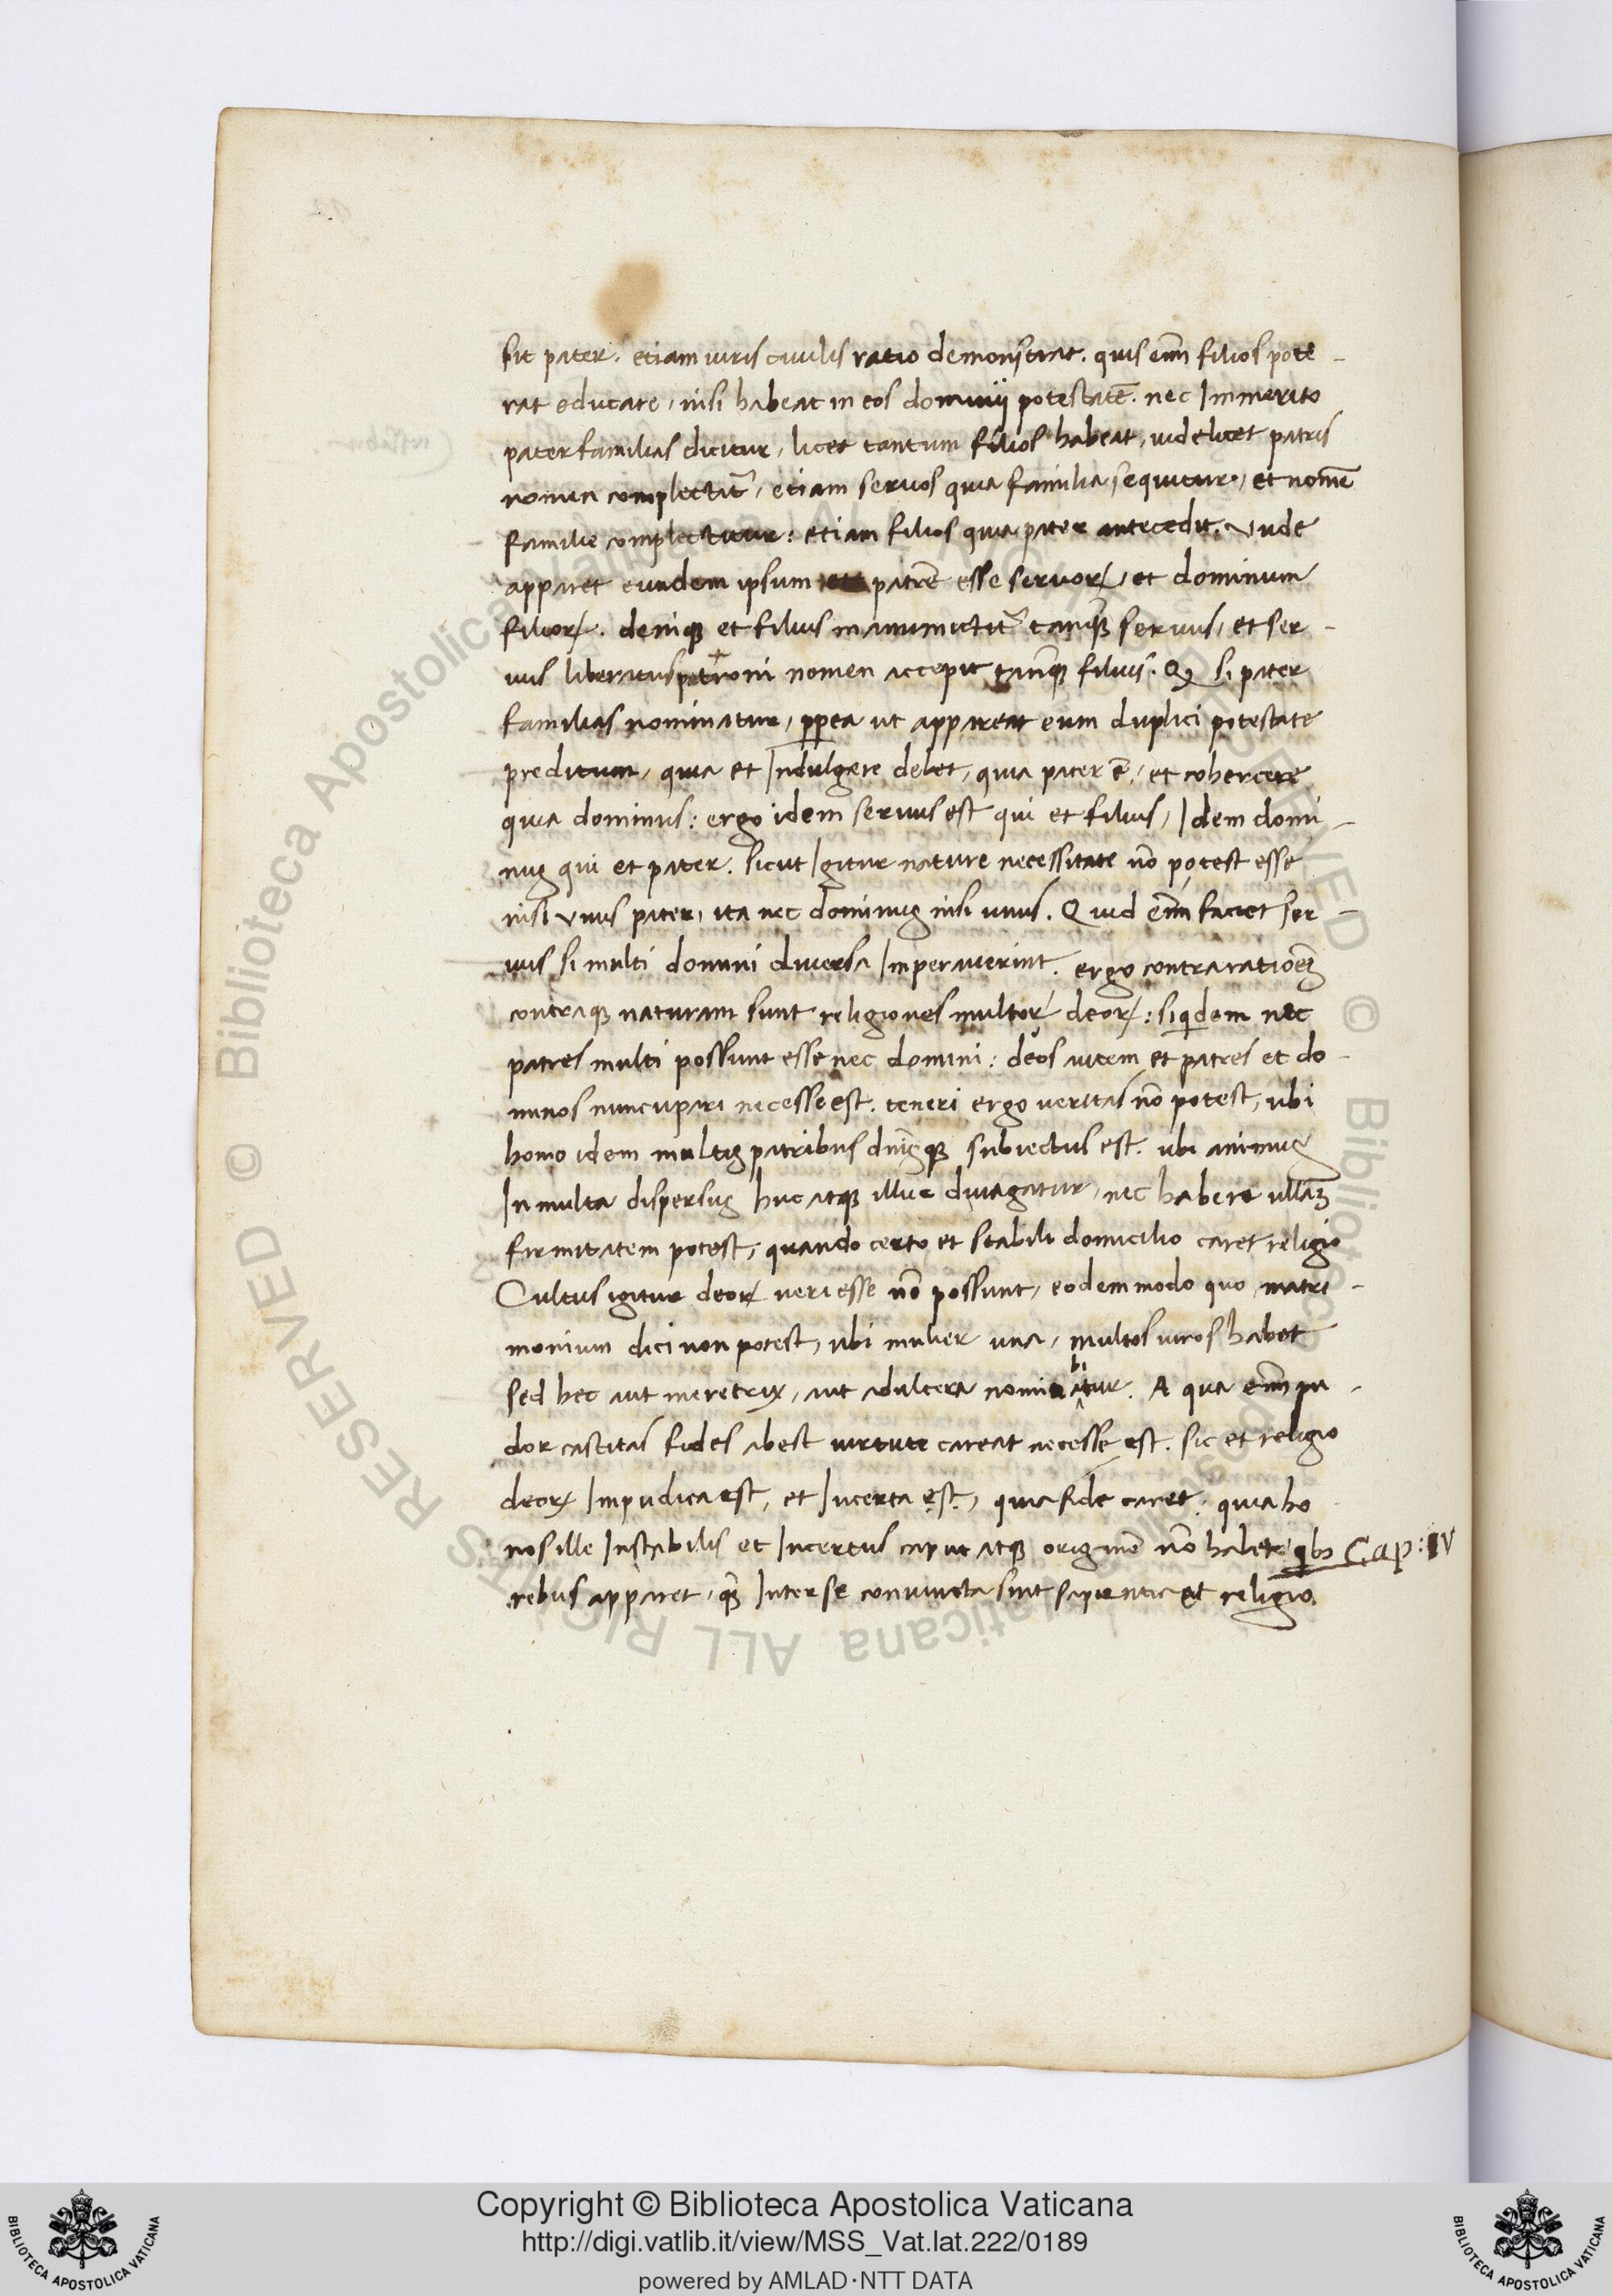 sit pater. etiam iuris civilis ratio demonstrat. quis eīm filios pote-
rat educare, nisi habeat in eos dominij potestatē. nec Immerito
pater familias dicitur, licet tantum filios habeat, uidelicet patris
nomen complectit᷑, etiam seruos quia familia sequitur, et nomē
familie complectitur: etiam filios quia pater antecedit. Vnde
apparet eundem ipsum patrē esse seruorꝝ, et dominum
filiorꝝ. deniqꝫ et filius manumictit᷑ tanqꝫ seruus, et ser-
uus liberatus patroni nomen accepit tanqꝫ filius. Qꝫ si pater
familias nominatur, ꝓpea ut appareat eum duplici potestate
preditum, quia et Indulgere debet, quia pater ē, et cohercere
quia dominus: ergo idem seruus est qui et filius, Idem domi-
nus qui et pater. sicut Igitur nature necessitate nō potest esse
nisi Vnus pater, ita nec dominus nisi unus. Quid eīm faciet ser-
uus si multi domini diuersa Imperauerint. ergo contra rationeꝫ
contraqꝫ naturam sunt religiones multorꝝ deorꝝ: siqͥdem nec
patres multi possunt esse nec domini: deos autem et patres et do-
minos nuncupari necesse est. teneri ergo ueritas nō potest, ubi
homo idem multis patribus dn̄isqꝫ subiectus est. ubi animus
In multa dispersus huc atqꝫ illuc diuagatur, nec habere ullaꝫ
firmitatem potest, quando certo et stabili domicilio caret religio
Cultus igitur deorꝝ ueri esse nō possunt, eodem modo quo matri-
monium dici non potest, ubi mulier una, multos uiros habet
sed hec aut meretrix, aut adultera nominabitur. A qua eīm pu-
dor castitas fides abest uirtute careat necesse est. sic et religio
deorꝝ Impudica est, et Incerta est, quia fide caret, quia ho
nos ille Instabilis et Incertus caput atqꝫ originē nō habet. qͥbꝫ Cap: IV
rebus apparet, qꝫ Inter se coniuncta sint sapientia et religio.
Copyright © Biblioteca Apostolica Vaticana
http://digi.vatlib.it/view/MSS_Vat.lat.222/0189
powered by AMLAD·NTT DATA
BIBLIOTECA APOSTOLICA VATICANA
BIBLIOTECA APOSTOLICA VATICANA